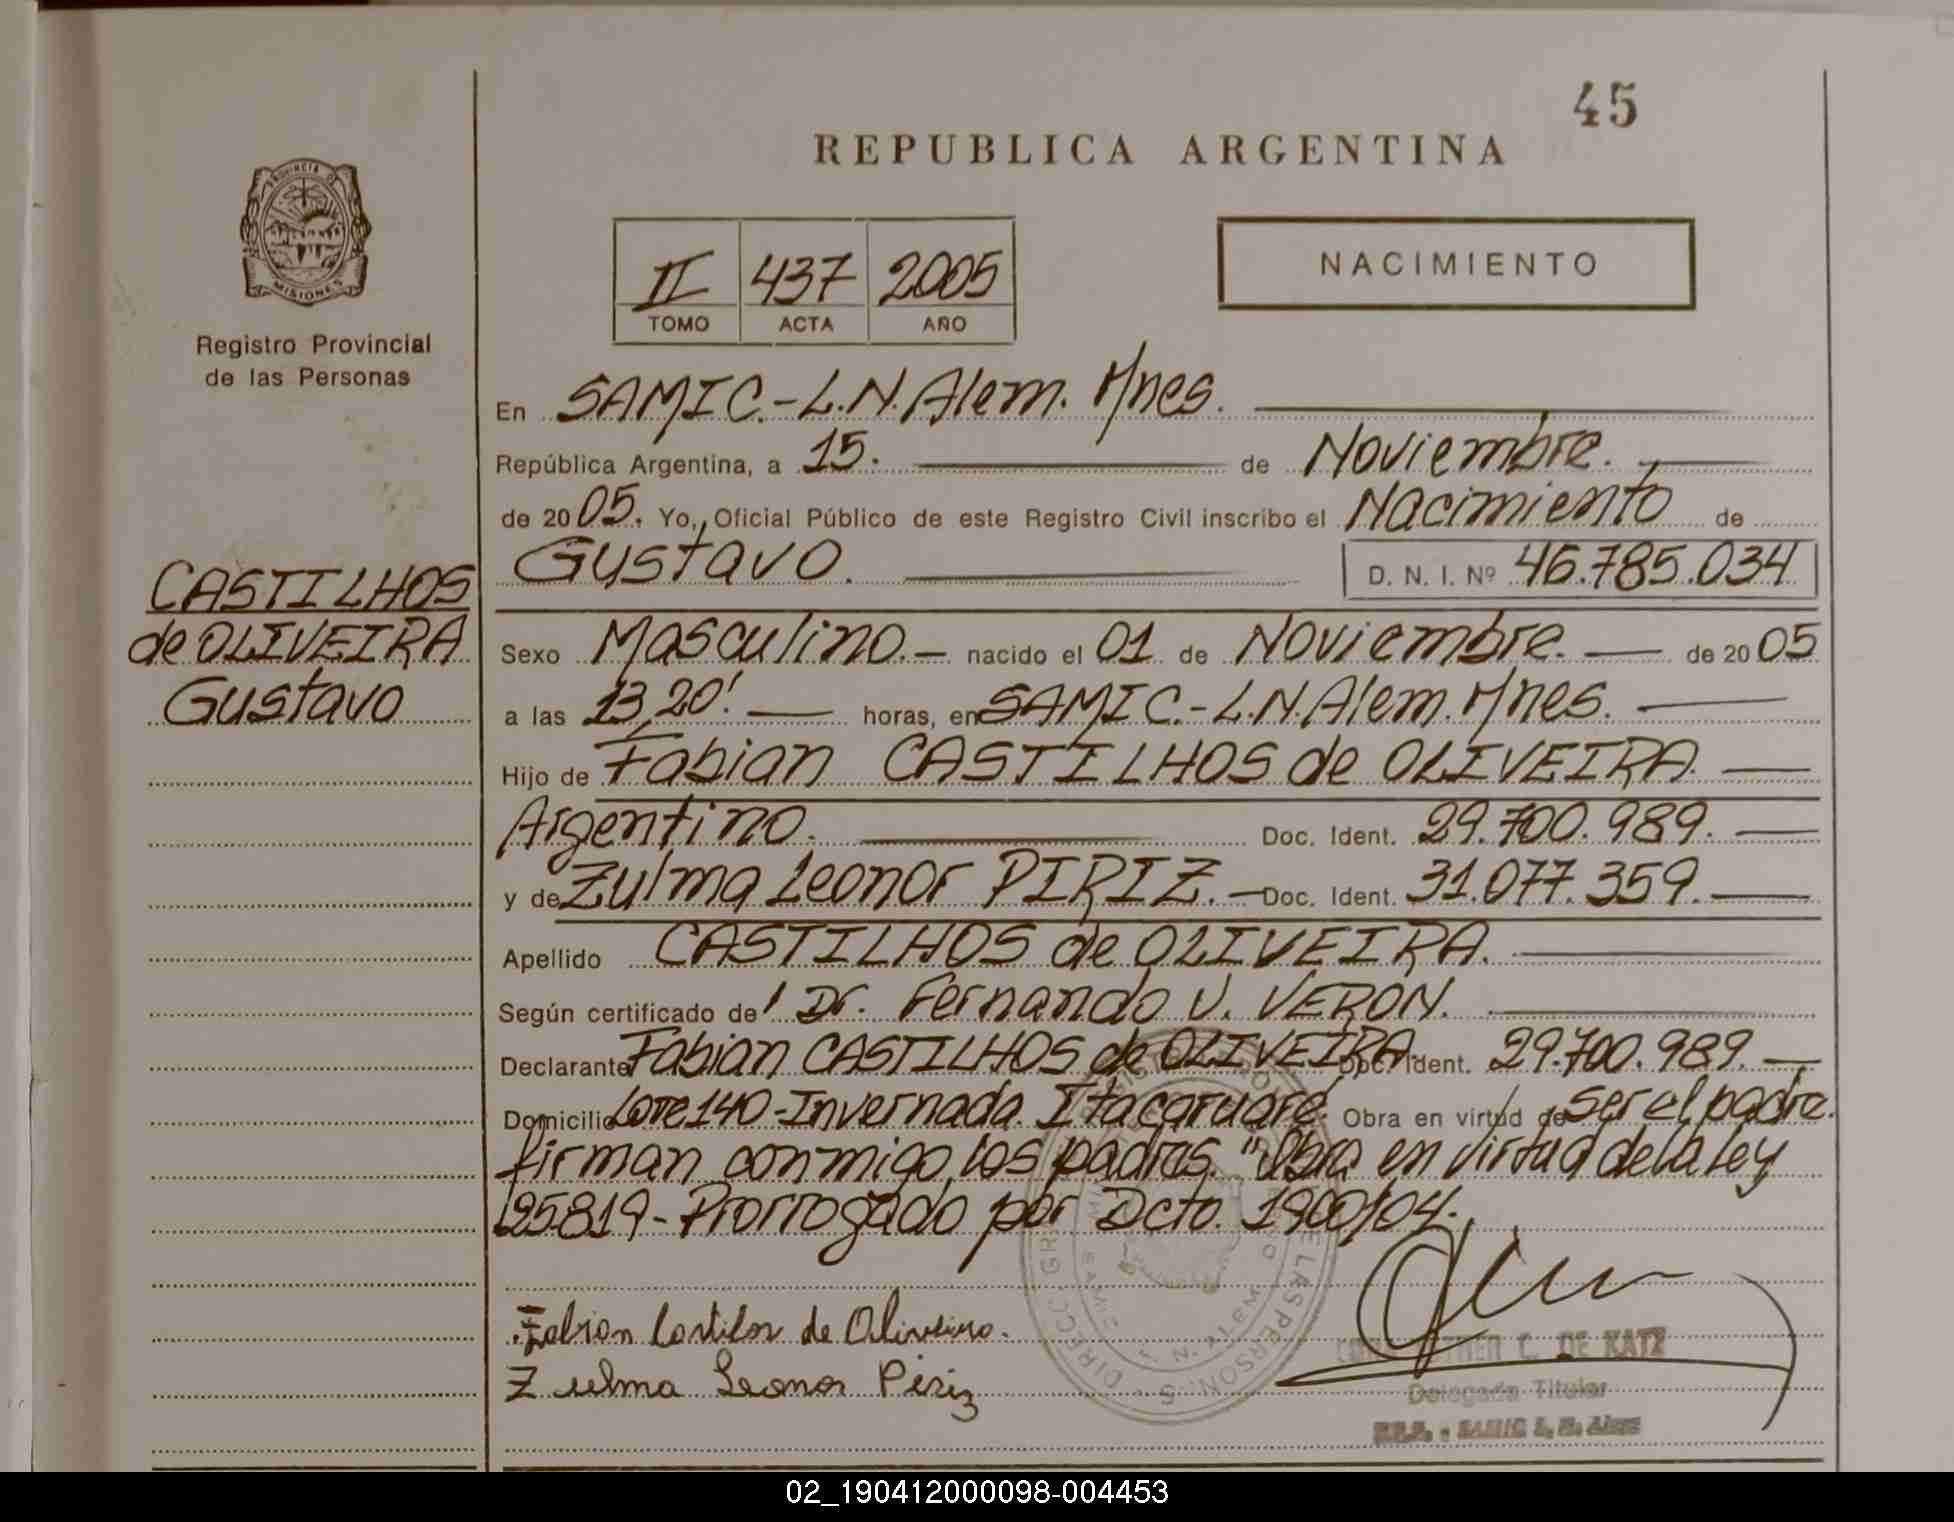 45
REPUBLICA ARGENTINA
PROVINCIA DE
MISIONES
Registro Provincial
de las Personas
II 437 2005
TOMO ACTA AÑO
NACIMIENTO
En SAMIC.-L.N.Alem. Mnes.
República Argentina, a 15. de Noviembre.
de 2005. Yo, Oficial Público de este Registro Civil inscribo el Nacimiento de
Gustavo. D. N. I. Nº 46.785.034
CASTILHOS
de OLIVEIRA
Gustavo
Sexo Masculino.- nacido el 01 de Noviembre. de 2005
a las 13,20' horas, en SAMIC.-L.N.Alem. Mnes.
Hijo de Fabian CASTILHOS de OLIVEIRA.
Argentino. Doc. Ident. 29.700.989.
y de Zulma Leonor PIRIZ.- Doc. Ident. 31.077.359.
Apellido CASTILHOS de OLIVEIRA.
Según certificado de Dr. Fernando V. VERON.
Declarante Fabian CASTILHOS de OLIVEIRA. Doc. Ident. 29.700.989.
Domicilio Lote 140-Invernada Itacaruaré. Obra en virtud de ser el padre.
firman conmigo, los padres. "Obra en virtud de la Ley
25819-Prorrogado por Dcto. 1900/04.
Fabian Castilos de Oliveira.
Zulma Leonor Piriz
C. DE KATZ
Delegada Titular
SAMIC L. N. Alem
02_190412000098-004453